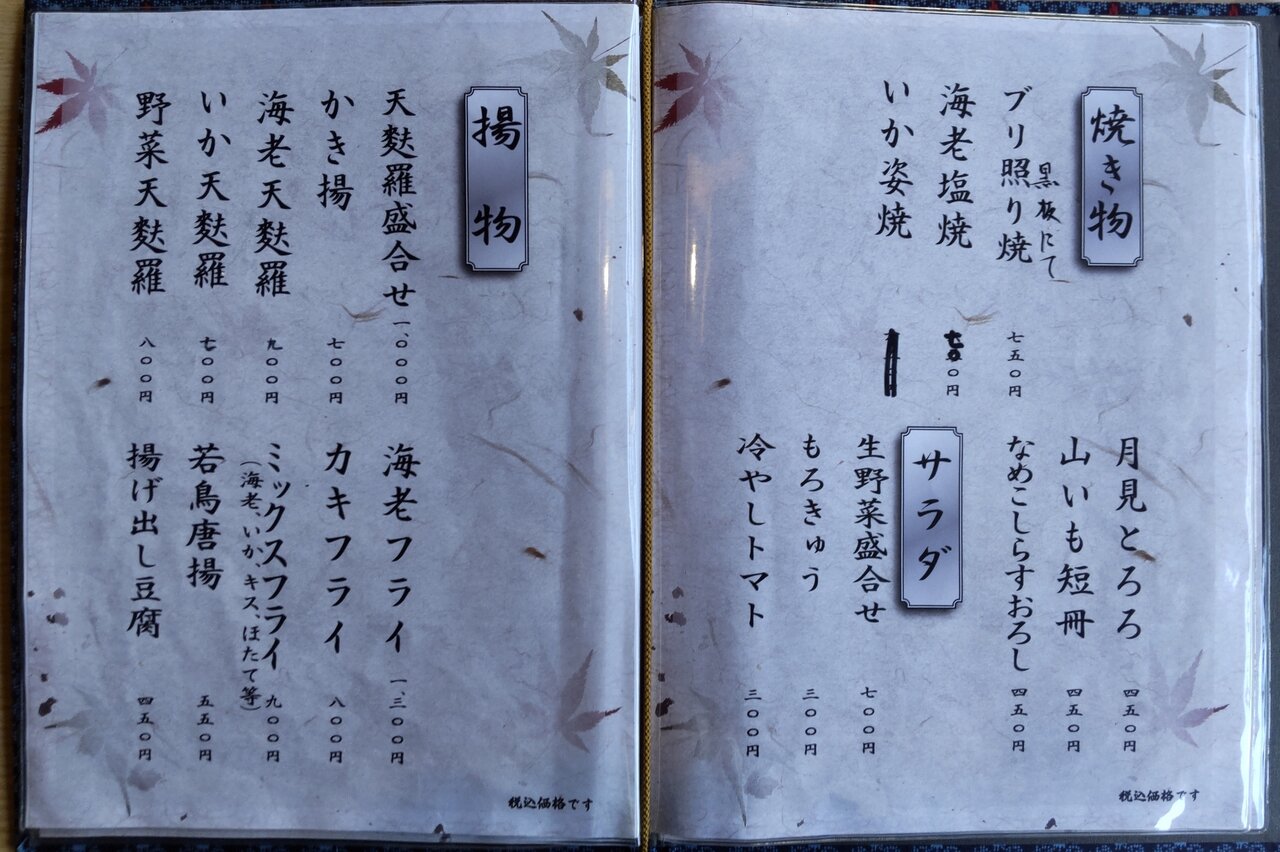 焼き物
黒板にて
ブリ照り焼 七五〇円
海老塩焼 七〇〇円
いか姿焼
月見とろろ 四五〇円
山いも短冊 四五〇円
なめこしらすおろし 四五〇円
サラダ
生野菜盛合せ 七〇〇円
もろきゅう 三〇〇円
冷やしトマト 三〇〇円
税込価格です
揚物
天麩羅盛合せ 一、〇〇〇円
かき揚 七〇〇円
海老天麩羅 九〇〇円
いか天麩羅 七〇〇円
野菜天麩羅 八〇〇円
海老フライ 一、三〇〇円
カキフライ 八〇〇円
ミックスフライ 九〇〇円
（海老、いか、キス、ほたて等）
若鳥唐揚 五五〇円
揚げ出し豆腐 四五〇円
税込価格です